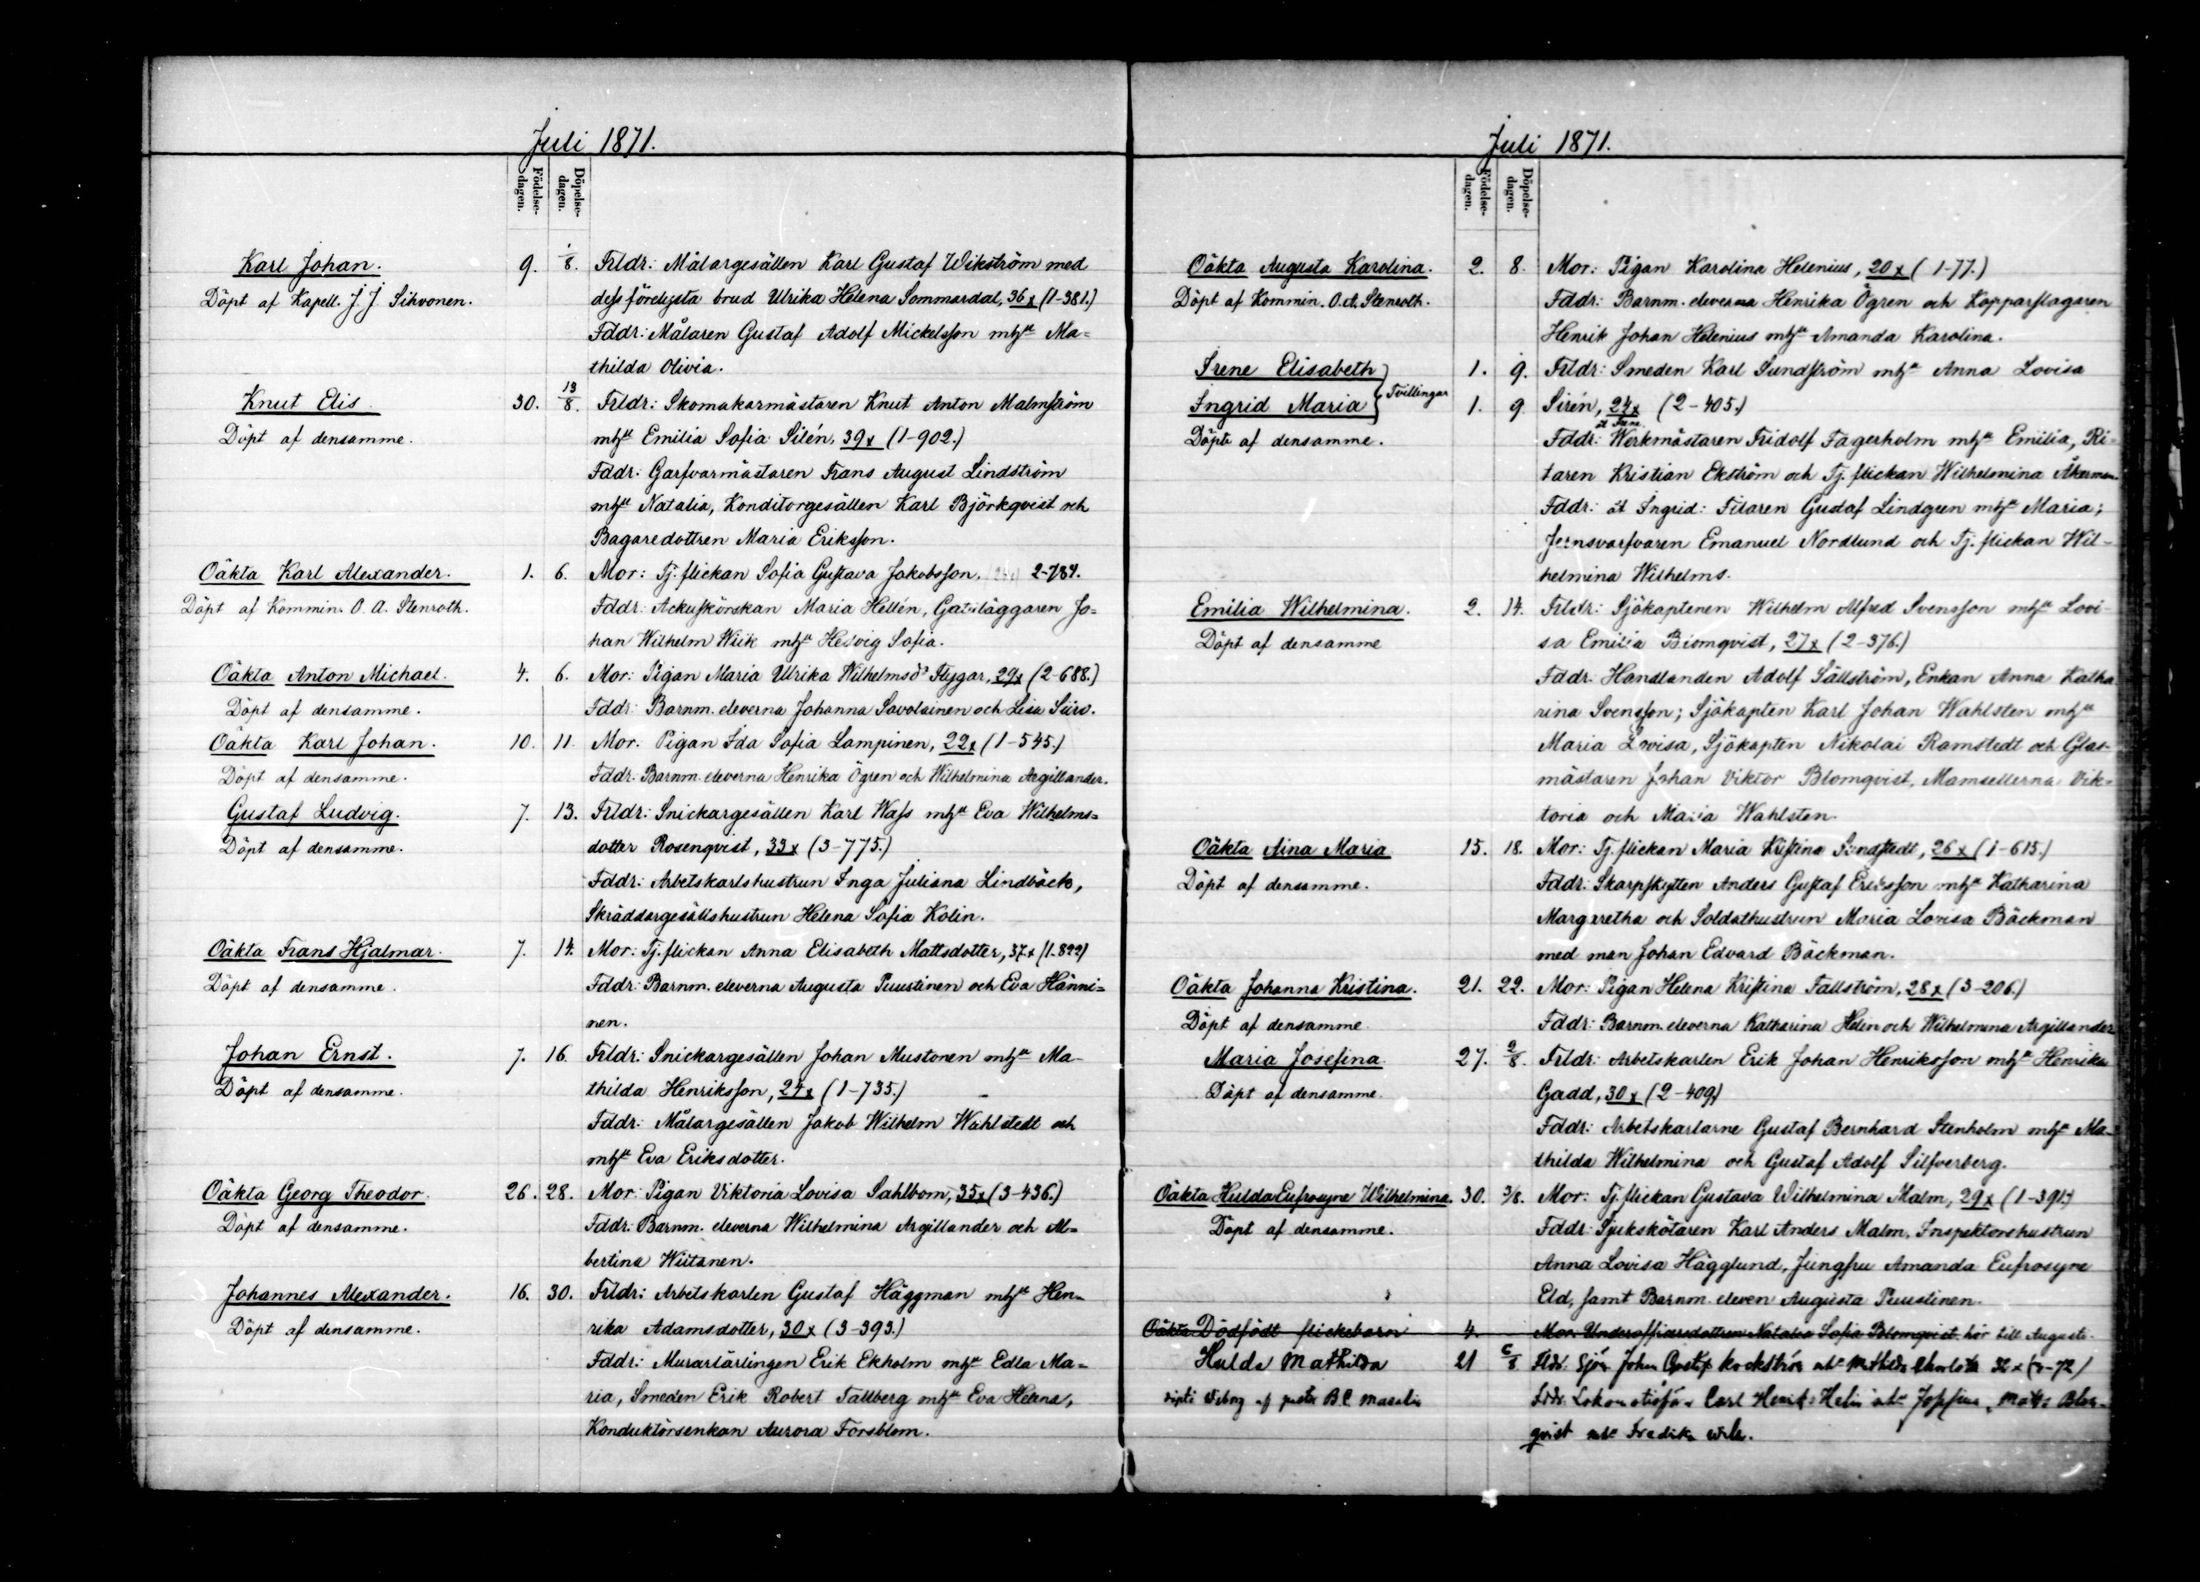 Juli 1871.
Födelse-
dagen.
Döpelse-
dagen.
Karl Johan. 9. 1/8. Frldr: Målargesällen Karl Gustaf Wikström med
Döpt af Kapell. J. J. Sihvonen. dess förelysta brud Ulrika Helena Sommardal, 36 x (1-381.)
Fddr: Målaren Gustaf Adolf Mickelsson mhu Ma=
thilda Olivia.
Knut Elis 30. 13/8. Frldr: Skomakarmästaren Knut Anton Malmström
Döpt af densamme. mhu Emilia Sofia Silén, 39 x (1-902.)
Fddr: Garfvarmästaren Frans August Lindström
mhu Natalia, Konditorgesällen Karl Björkqvist och
Bagaredottren Maria Eriksson.
Oäkta Karl Alexander. 1. 6. Mor: Tj. flickan Sofia Gustava Jakobsson, 2-784.
Döpt af Kommin. O. A. Stenroth. Fddr: Ackuskörskan Maria Hellén, Gatuläggaren Jo=
han Wilhelm Wiik mhu Hedvig Sofia.
Oäkta Anton Michael. 4. 6. Mor: Pigan Maria Ulrika Wilhelmsdr Flygar, 29 x (2-688.)
Döpt af densamme. Fddr: Barnm. eleverna Johanna Savolainen och Lisa Siiro.
Oäkta Karl Johan. 10. 11. Mor. Pigan Ida Sofia Lampinen, 22 x (1-545.)
Döpt af densamme. Fddr: Barnm. eleverna Henrika Ögren och Wilhelmina Argillander.
Gustaf Ludvig. 7. 13. Frldr: Snickargesällen Karl Wass mhu Eva Wilhelms=
Döpt af densamme. dotter Rosenqvist, 33 x (3-775.)
Fddr: Arbetskarlshustrun Inga Juliana Lindbäck,
Skräddargesällshustrun Helena Sofia Kolin.
Oäkta Frans Hjalmar. 7. 14. Mor: Tj. flickan Anna Elisabeth Mattsdotter, 37 x (1-822)
Döpt af densamme. Fddr: Barnm. eleverna Augusta Puustinen och Eva Hänni=
nen.
Johan Ernst. 7. 16. Frldr: Snickargesällen Johan Mustonen mhu Ma-
Döpt af densamme. thilda Henriksson, 24 x (1-735.)
Fddr: Målargesällen Jakob Wilhelm Wahlstedt och
mhu Eva Eriksdotter.
Oäkta Georg Theodor. 26. 28. Mor: Pigan Viktoria Lovisa Sahlbom, 35 x (3-436.)
Döpt af densamme. Fddr: Barnm. eleverna Wilhelmina Argillander och Al=
bertina Wiitanen.
Johannes Alexander. 16. 30. Frldr: Arbetskarlen Gustaf Häggman mhu Hen=
Döpt af densamme. rika Adamsdotter, 30 x (3-393.)
Fddr: Murarlärlingen Erik Ekholm mhu Edla Ma=
ria, Smeden Erik Robert Tallberg mhu Eva Helena,
Konduktörsenkan Aurora Forsblom.
Juli 1871.
Födelse-
dagen.
Döpelse-
dagen.
Oäkta Augusta Karolina. 2. 8. Mor: Pigan Karolina Helenius, 20 x (1-77.)
Döpt af Kommin. O. A. Stenroth. Fddr: Barnm. eleverna Henrika Ögren och Kopparslagaren
Henrik Johan Helenius mhu Amanda Karolina.
Irene Elisabeth 1. 9. Frldr: Smeden Karl Sundström mhu Anna Lovisa
Ingrid Maria } Tvillingar 1. 9. Sirén, 24 x (2-405.)
Döpte af densamme. Fddr: Werkmästaren Fridolf Fagerholm mhu Emilia, Ri-
taren Kristian Ekström och Tj. flickan Wilhelmina Åkerman
Fddr: åt Ingrid: Filaren Gustaf Lindgren mhu Maria;
Jernsvarfvaren Emanuel Nordlund och Tj. flickan Wil-
helmina Wilhelms.
Emilia Wilhelmina. 2. 14. Frldr: Sjökaptenen Wilhelm Alfred Svensson mhu Lovi-
Döpt af densamme sa Emilia Blomqvist, 27 x (2-376.)
Fddr. Handlanden Adolf Sällström, Enkan Anna Katha
rina Svensson; Sjökapten Karl Johan Wahlsten mhu
Maria Lovisa, Sjökapten Nikolai Ramstedt och Glas-
mästaren Johan Viktor Blomqvist, Mamsellerna Vik-
toria och Maria Wahlsten.
Oäkta Aina Maria 15. 18. Mor: Tj. flickan Maria Kristina Sundstedt, 26 x (1-615.)
Döpt af densamme. Fddr: Skarpskytten Anders Gustaf Eriksson mhu Katharina
Margaretha och Soldathustrun Maria Lovisa Bäckman
med man Johan Edvard Bäckman.
Oäkta Johanna Kristina. 21. 22. Mor: Pigan Helena Kristina Fallström, 28 x (3-206.)
Döpt af densamme. Fddr: Barnm. eleverna Katharina Helen och Wilhelmina Argillander
Maria Josefina 27. 2/8. Frldr: Arbetskarlen Erik Johan Henriksson mhu Henrika
Döpt af densamme. Gadd, 30 x (2-409.)
Fddr: Arbetskarlarne Gustaf Bernhard Stenholm mhu Ma-
thilda Wilhelmina och Gustaf Adolf Silfverberg.
Oäkta Hulda Eufrosyne Wilhelmina. 30. 3/8. Mor: Tj. flickan Gustava Wilhelmina Malm, 29 x (1-391.)
Döpt af densamme. Fddr: Sjukskötaren Karl Anders Malm, Inspektorshustrun
Anna Lovisa Hägglund, Jungfru Amanda Eufrosyne
Eld, samt Barnm. eleven Augusta Puustinen.
Oäkta Dödfödt flickebarn 4. Mor. Underofficersdottren Natalia Sofia Blomqvist. hör till Augusti.
Hulda Mathilda 21 Fldr. Sjöm Johan Gustaf Kockström mhu Mathilda Charlotta 32 x
af B C Fddr Carl Henrik Helin mhu Josefina, Matts Blom-
qvist mhu Fredika